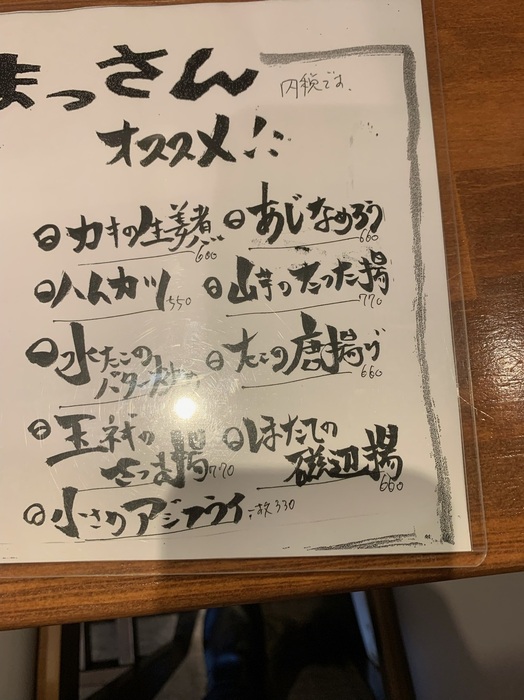 まっさん
内税です。
オススメ!!
カキの生姜煮 660
あじなめろう 660
ハムカツ 550
山芋のたつた揚 770
水たこの
バター
たこの唐揚げ 660
玉ねぎの
さつま揚 770
ほたての
磯辺揚 660
小さめアジフライ 330